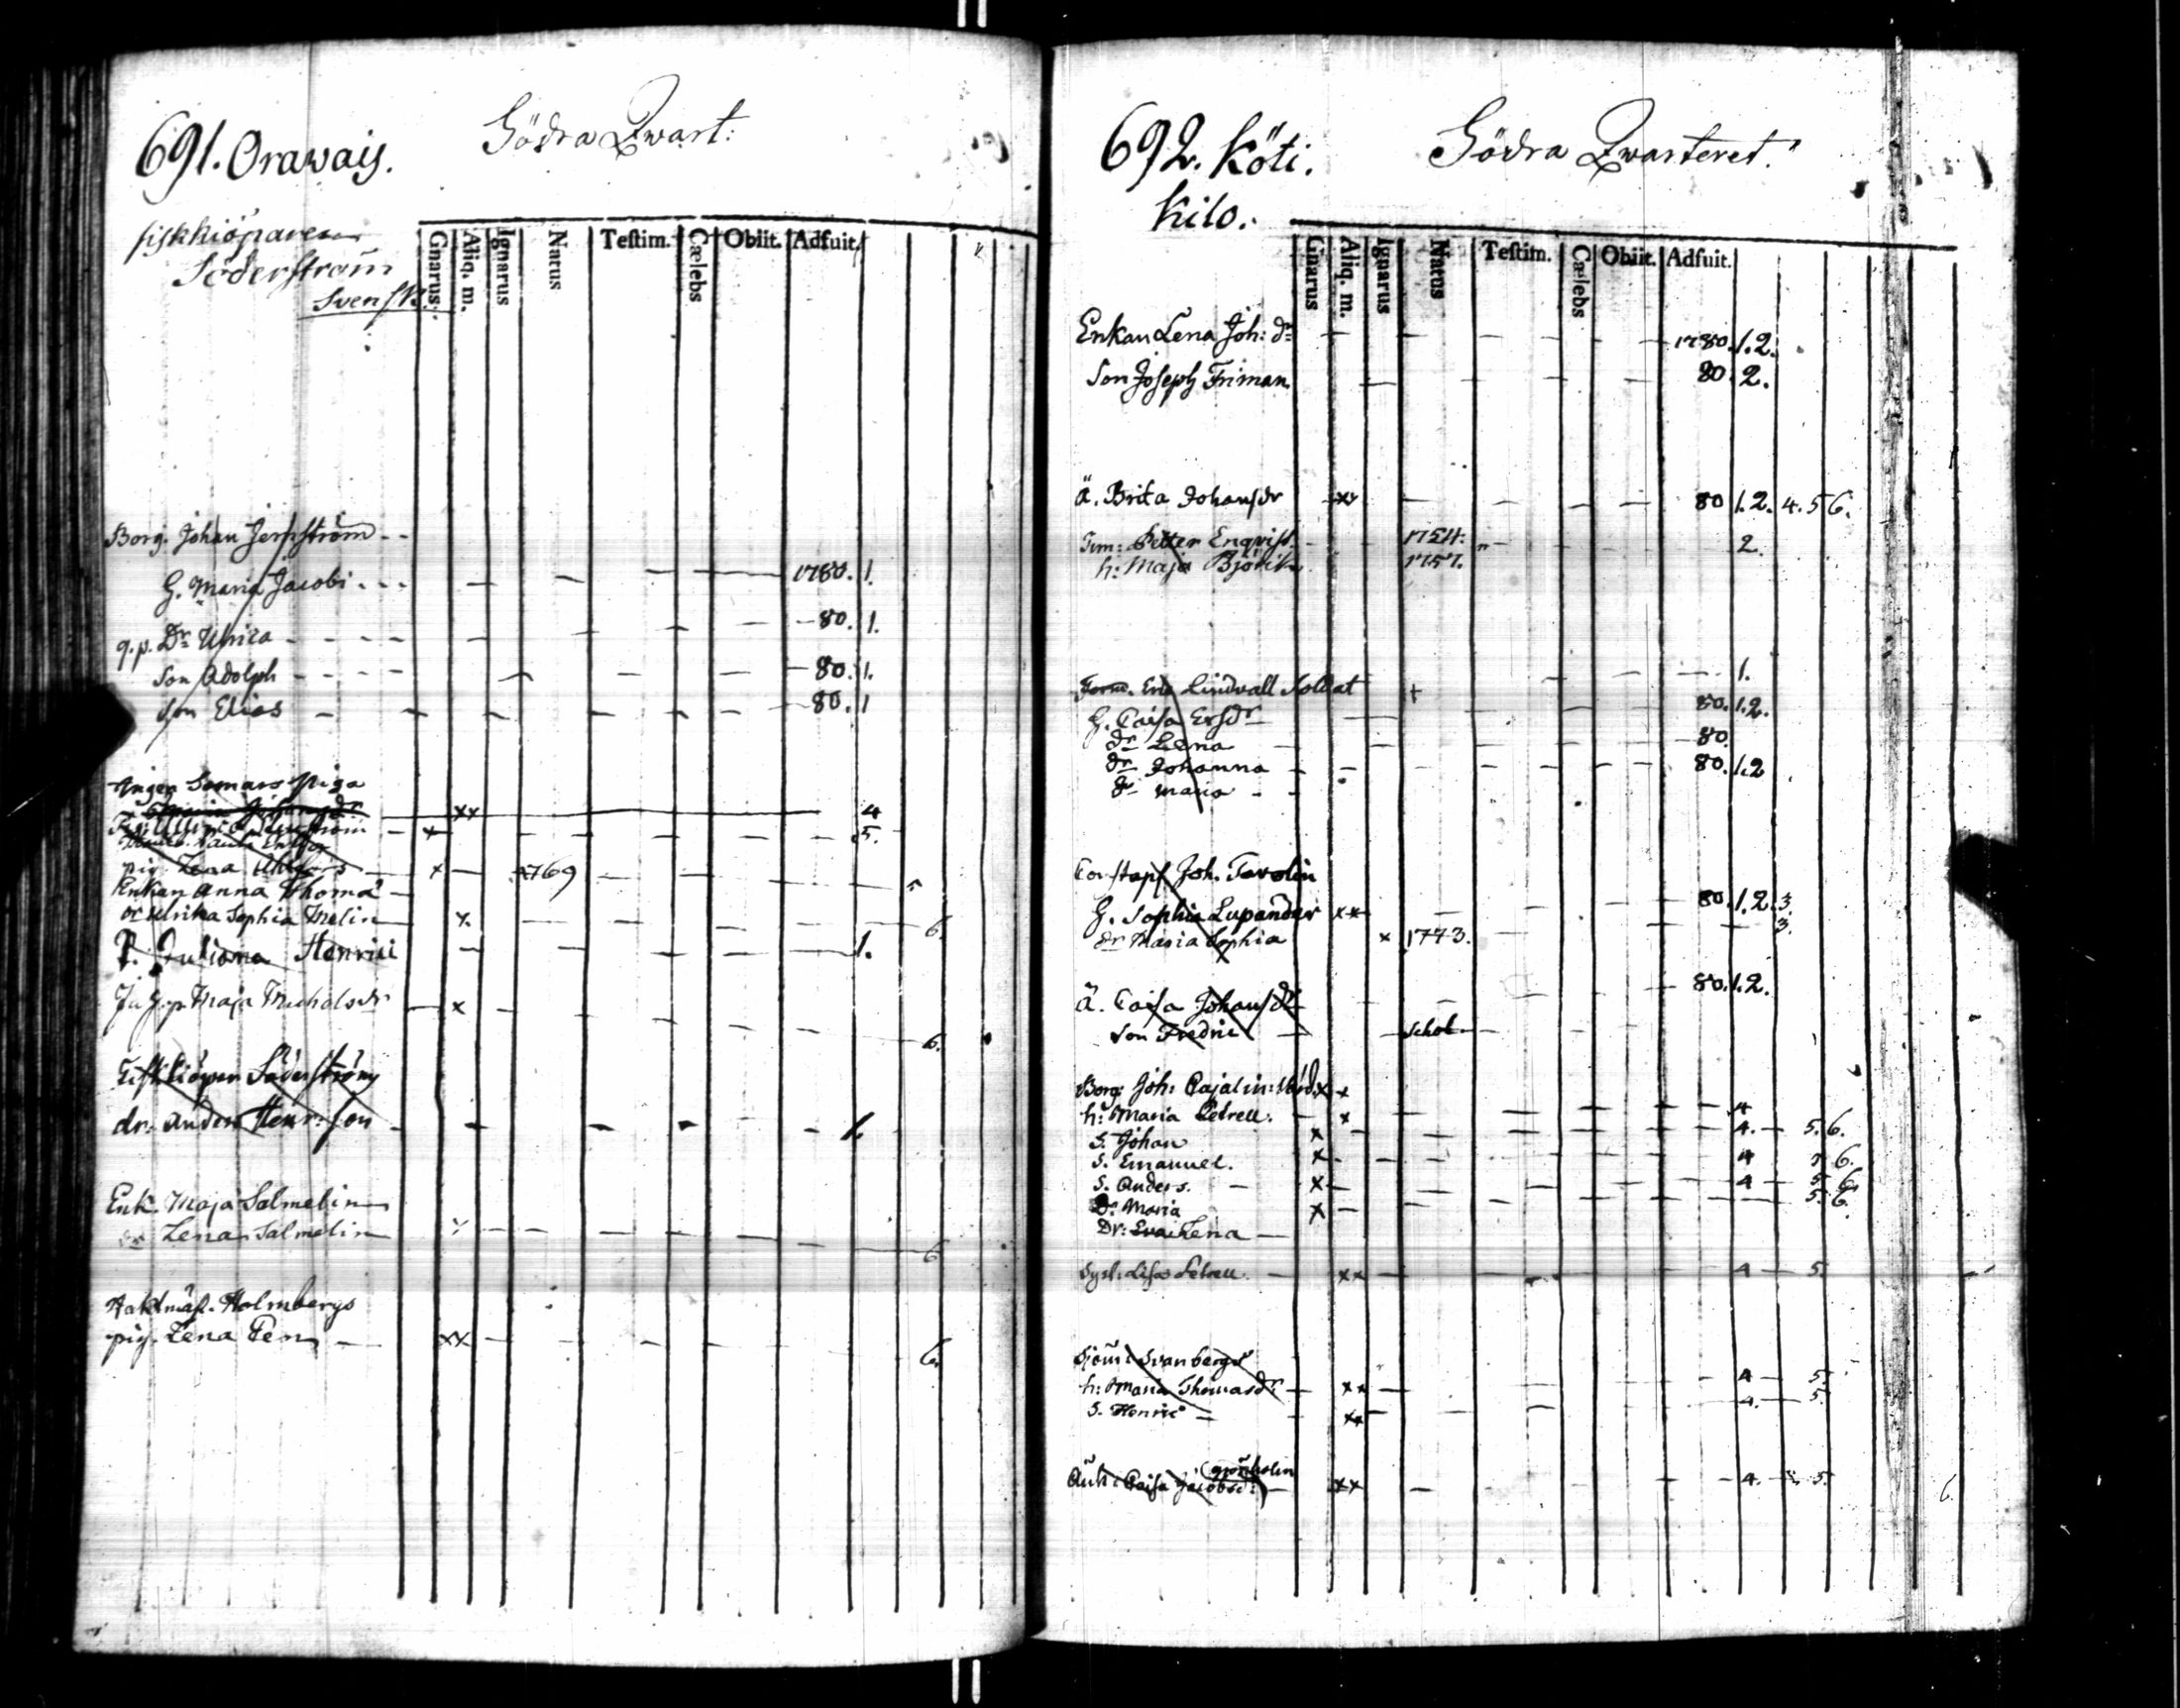 691. Orawais.
Södra Qwart:
fiskkiöparen
Söderström
Svensk.
Gnarus. Aliq. m. Ignarus Natus Testim. Cælebs Obiit. Adfuit.
Borg. Johan Jernström - -
H. Maria Jacobi - - - 1780. 1.
q. p. Dr Ulrica - - - 80. 1.
Son Adolph - - - 80. 1.
Son Elias - 80. 1
piga
xx 4
x 5.
pig. Lena x 1769
Enkan Anna Thoma
Ulrika Sophia x. 6.
P. Juliana Henrici 1.
Maja x 6.
Fiskkiöpar Söderström
dr: Anders Henr: son 1.
Enk. Maja Salmelin
dr Lena Salmelin x 6
Holmbergs
pig. Lena xx 6.
692. Köti.
Kilo.
Södra Qwarteret.
Gnarus Aliq. m. Ignarus Natus Testim. Cælebs Obiit. Adfuit.
Enkan Lena Joh: dr 1780. 1. 2.
Son Joseph Friman 80. 2.
ä. Brita Johansdr xx 80 1. 2. 4. 5 6.
Tim: Petter Enqvist 1754. 2.
h: Maja 1757.
Eric Lindvall Soldat 1.
H. Caisa Ersdr 80. 1. 2.
dr Lena 80.
dr Johanna 80. 1. 2
dr Maria - -
Joh. Tavolin
H. Sophia Lupander xx 80. 1. 2. 3.
dr Maria Sophia x 1773. 3.
Ä. Caisa Johansdr 80. 1. 2.
Son Fredric Schol.
Borg: Joh: Cajalin: x x 4
h: Maria x 4. 5. 6.
S. Johan x
S. Emanuel. x 4 6.
S. Anders. x 4 5 6
Dr Maria x 5. 6.
Dr: Eva Lena
Lisa xx 4 5.
Sjöm: Svanberg
h: Maria Thomasdr xx 4 5.
S. Henric xx 4. 5.
Caisa Jacobsd: xx 4. 5. 6.